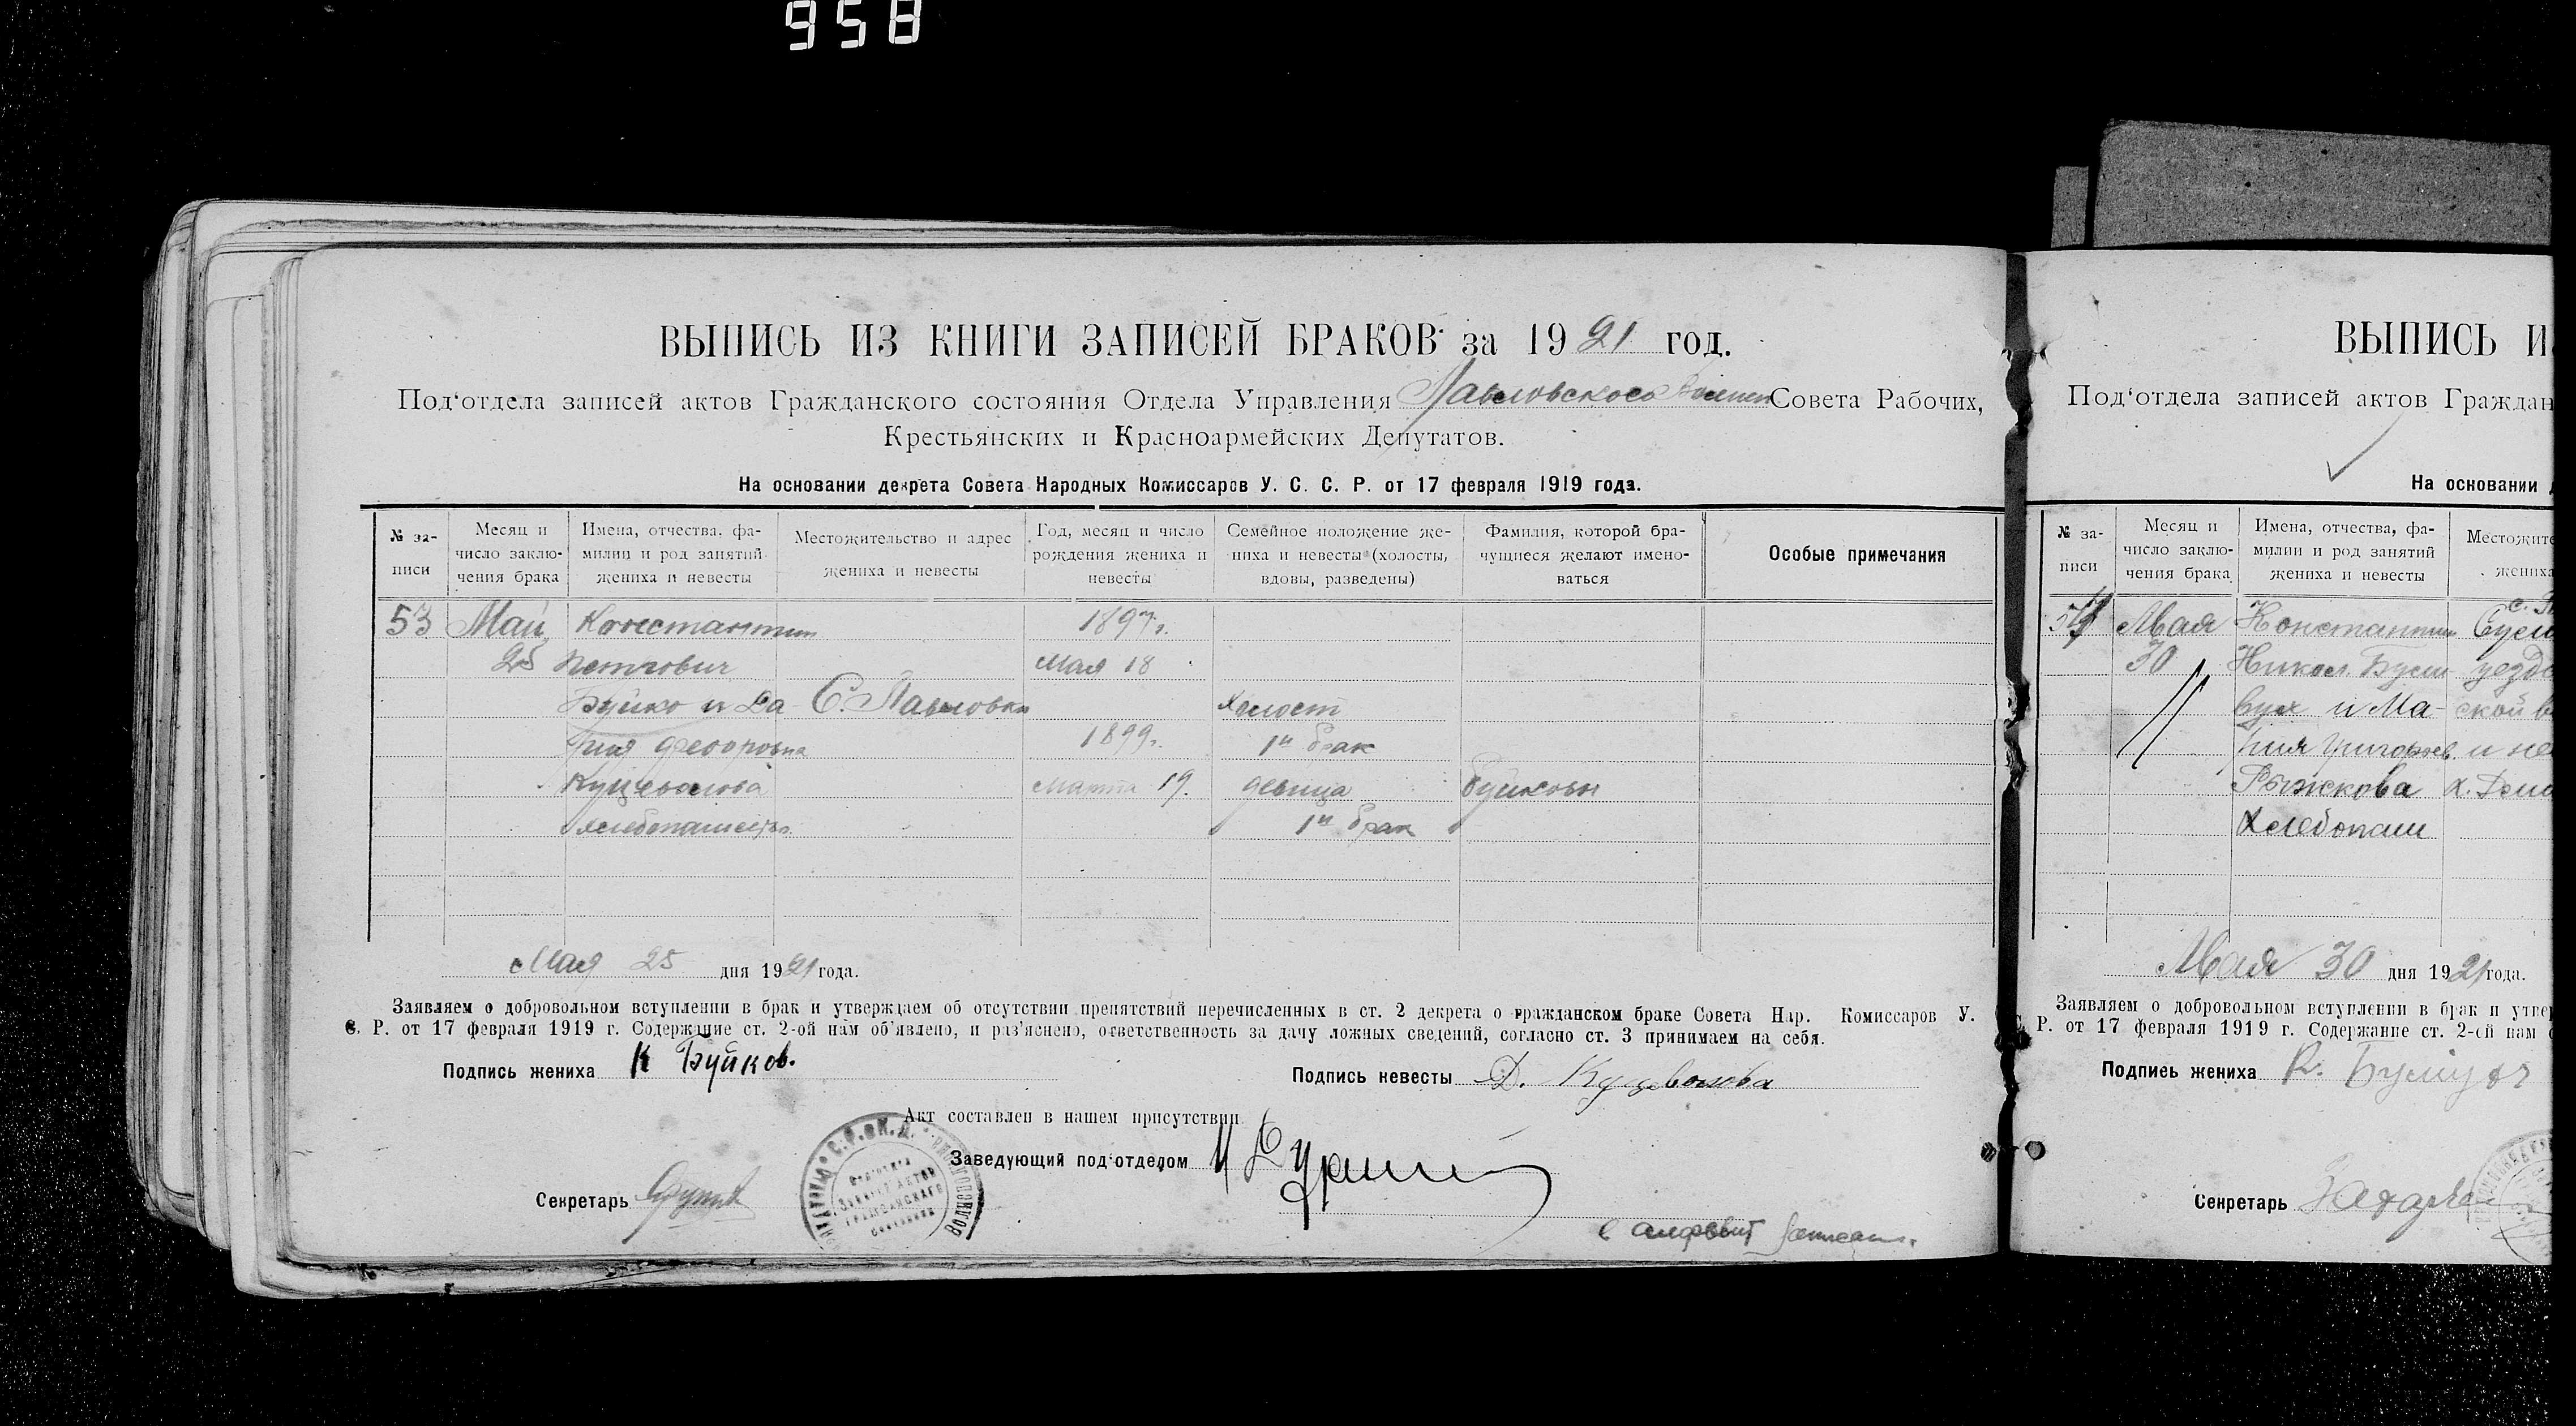 958
ВЫПИСЬ ИЗ КНИГИ ЗАПИСЕЙ БРАКОВ за 1921 год.
Под‘отдела записей актов Гражданского состояния Отдела Управления Павловского Совета Рабочих,
Крестьянских и Красноармейских Депутатов.
На основании декрета Совета Народных Комиссаров У. С. С. Р. от 17 февраля 1919 года.
№ за-
писи
Месяц и
число заклю-
чения брака
Имена, отчества, фа-
милии и род занятий
жениха и невесты
Местожительство и адрес
жениха и невесты
Год, месяц и число
рождения жениха и
невесты
Семейное положение же-
ниха и невесты (холосты,
вдовы, разведены)
Фамилия, которой бра-
чущиеся желают имено-
ваться
Особые примечания
53 Май Константин 1897 г.
25 Петрович Мая 18
Буйко и Да- С. Павловка Холост
рия Федоровна 1899 г. 1й брак
Куцеволова Марта 19. девица Буйковы
1й брак
Мая 25 дня 1921 года.
Заявляем о добровольном вступлении в брак и утверждаем об отсутствии препятствий перечисленных в ст. 2 декрета о гражданском браке Совета Нар. Комиссаров У.
С. Р. от 17 февраля 1919 г. Содержание ст. 2-ой нам об‘явлено, и раз‘яснено, ответственность за дачу ложных сведений, согласно ст. 3 принимаем на себя.
Подпись жениха К Буйков.
Подпись невесты Д. Куцеволова
Акт составлен в нашем присутствии
Заведующий под‘отделом
Секретарь
ЗАПИСИ АКТОВ
ГРАЖДАНСКАГО
СОСТОЯНИЯ
в алфавит
ВЫПИСЬ И
Под‘отдела записей актов Граждан
На основании
№ за-
писи
Месяц и
число заклю-
чения брака
Имена, отчества, фа-
милии и род занятий
жениха и невесты
Местожите
жениха
54 Мая Константин
30 Никол. Буш- уезда
вуев и Ма- ской в
рия Григорьев. и не
Рыжкова
Хлебопаш
Мая 30 дня 1921 года.
Заявляем о добровольном вступлении в брак и утвер
Р. от 17 февраля 1919 г. Содержание ст. 2-ой нам
Подпись жениха К.
Секретарь